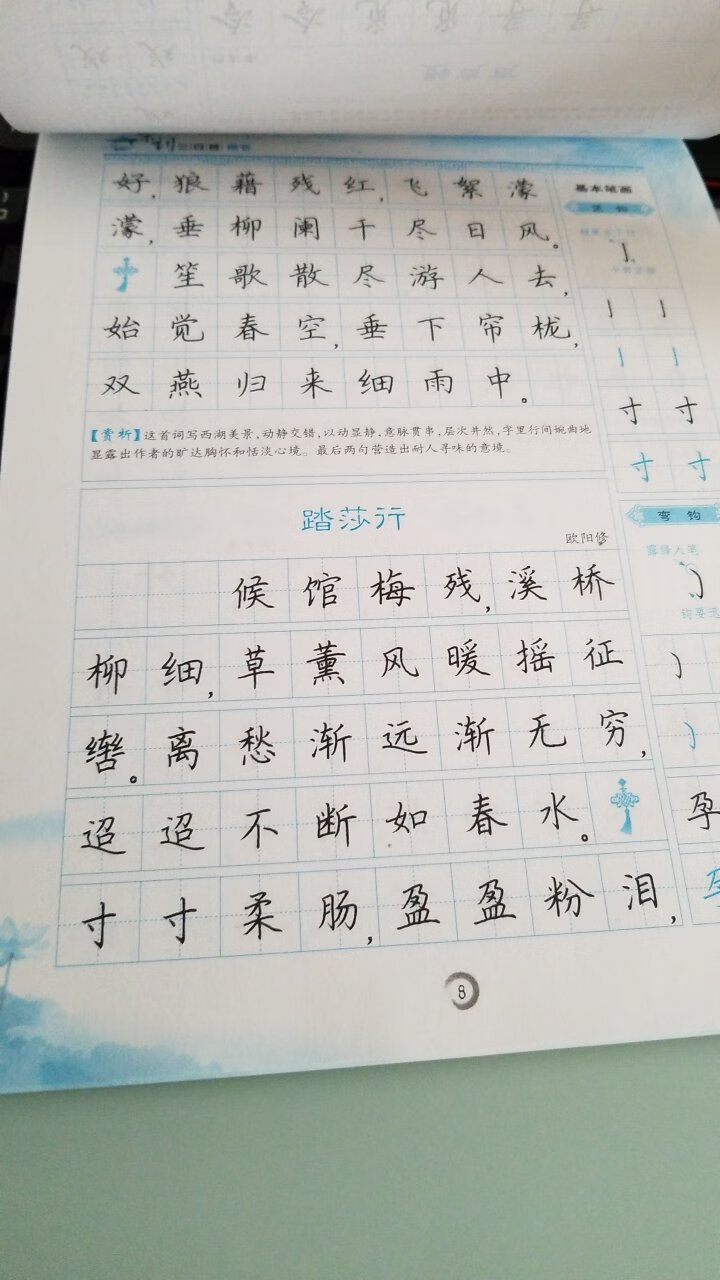 好，狼藉残红，飞絮濛
濛，垂柳阑干尽日风。
笙歌散尽游人去，
始觉春空，垂下帘栊，
双燕归来细雨中。
【赏析】这首词写西湖美景，动静交错，以动显静，意脉贯串，层次井然，字里行间婉曲地
显露出作者的旷达胸怀和恬淡心境。最后两句营造出耐人寻味的意境。
踏莎行
欧阳修
候馆梅残，溪桥
柳细，草薰风暖摇征
辔。离愁渐远渐无穷，
迢迢不断如春水。
寸寸柔肠，盈盈粉泪，
8
基本笔画
亅亅
亅亅
寸寸
寸寸
弯钩
露锋入笔
孕